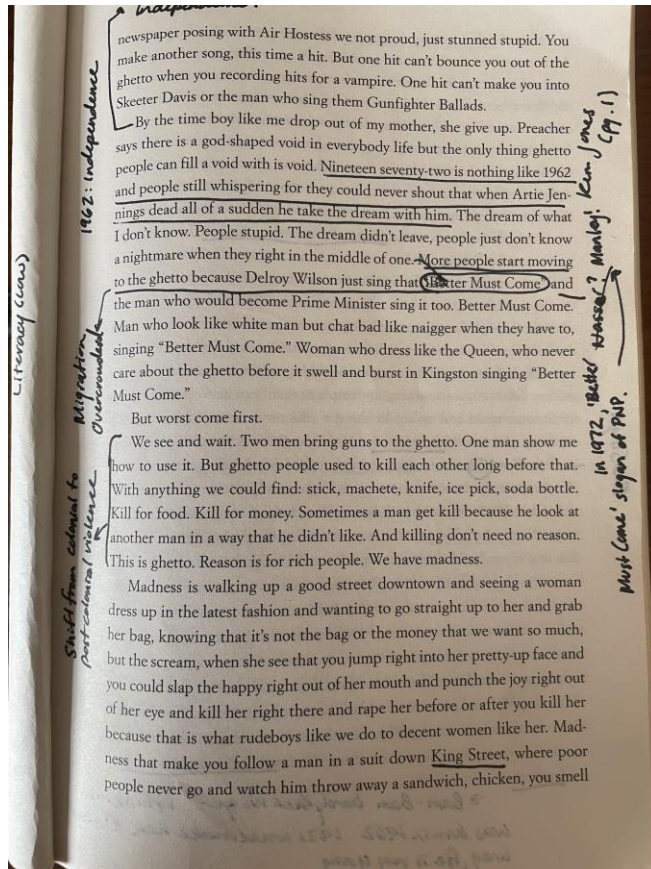 Independence.
newspaper posing with Air Hostess we not proud, just stunned stupid. You
make another song, this time a hit. But one hit can't bounce you out of the
ghetto when you recording hits for a vampire. One hit can't make you into
Skeeter Davis or the man who sing them Gunfighter Ballads.
By the time boy like me drop out of my mother, she give up. Preacher
says there is a god-shaped void in everybody life but the only thing ghetto
people can fill a void with is void. Nineteen seventy-two is nothing like 1962
and people still whispering for they could never shout that when Artie Jen-
nings dead all of a sudden he take the dream with him. The dream of what
I don't know. People stupid. The dream didn't leave, people just don't know
a nightmare when they right in the middle of one. More people start moving
to the ghetto because Delroy Wilson just sing that "Better Must Come" and
the man who would become Prime Minister sing it too. Better Must Come.
Man who look like white man but chat bad like naigger when they have to,
singing "Better Must Come." Woman who dress like the Queen, who never
care about the ghetto before it swell and burst in Kingston singing "Better
Must Come."
But worst come first.
We see and wait. Two men bring guns to the ghetto. One man show me
how to use it. But ghetto people used to kill each other long before that.
With anything we could find: stick, machete, knife, ice pick, soda bottle.
Kill for food. Kill for money. Sometimes a man get kill because he look at
another man in a way that he didn't like. And killing don't need no reason.
This is ghetto. Reason is for rich people. We have madness.
Madness is walking up a good street downtown and seeing a woman
dress up in the latest fashion and wanting to go straight up to her and grab
her bag, knowing that it's not the bag or the money that we want so much,
but the scream, when she see that you jump right into her pretty-up face and
you could slap the happy right out of her mouth and punch the joy right out
of her eye and kill her right there and rape her before or after you kill her
because that is what rudeboys like we do to decent women like her. Mad-
ness that make you follow a man in a suit down King Street, where poor
people never go and watch him throw away a sandwich, chicken, you smell
1962: Independence
Migration
Overcrowded
Shift from colonial to
postcolonial violence
Literacy
Manley?
Jones
(pg. 1)
In 1972, 'Better
Must Come' slogan of PNP.